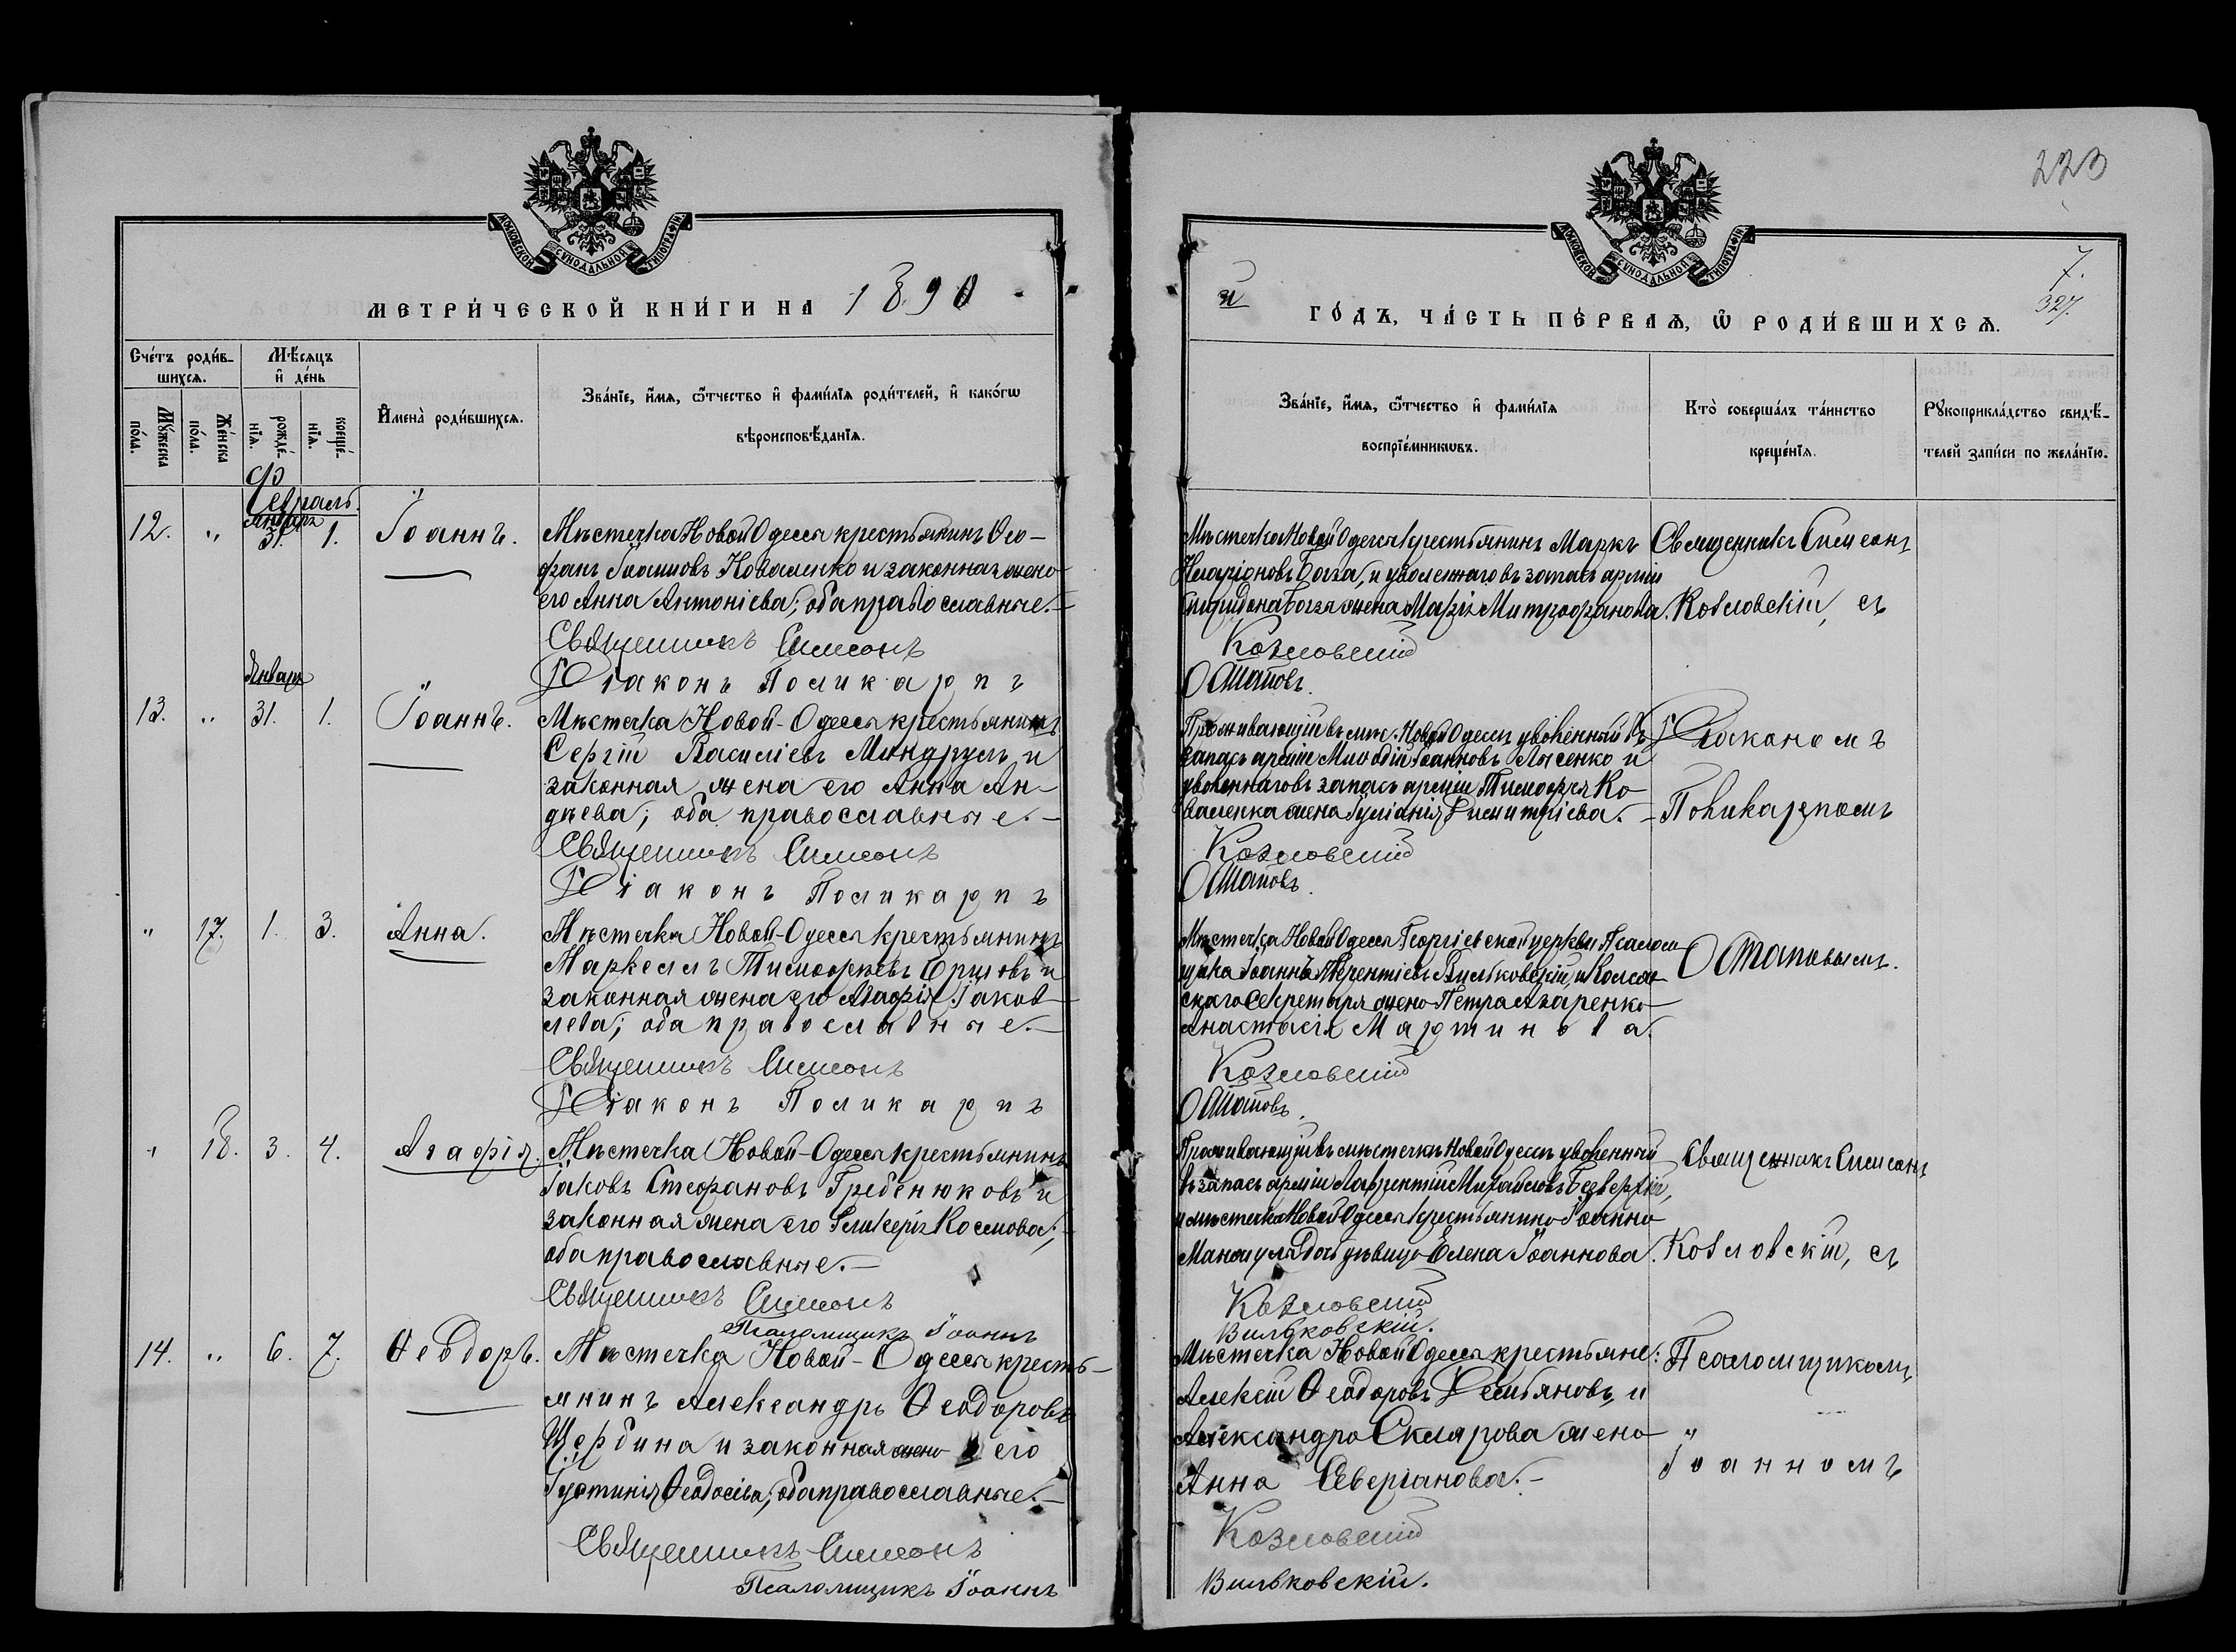 МОСКОВСКОЙ СѴНОДАЛЬНОЙ ТИПОГРАФІИ
МЕТРИ́ЧЕСКОЙ КНИ́ГИ НА 1890
Сче́тъ роди́в-
шихсѧ.
Мѣ́сѧцъ
и҆ де́нь
Мꙋ́жеска
по́ла.
Же́нска
по́ла.
рожде́-
нїѧ.
креще́-
нїѧ.
И҆мена̀ роди́вшихсѧ.
Зва́нїе, и҆́мѧ, ѻ҆́тчество и҆ фами́лїѧ роди́телей, и҆ како́гѡ
вѣроисповѣ́данїѧ.
Февраль.
Январь
12. " 31. 1. Іоаннъ.
Мѣстечка Новой Одессы крестьянинъ Ѳео-
фанъ Іоанновъ Коваленко и законная жена
его Анна Антоніева; оба православные.—
Священникъ Симеонъ
Діаконъ Поликарпъ
Январь
13. " 31. 1. Іоаннъ.
Мѣстечка Новой-Одессы крестьянинъ
Сергій Василіевъ Мандрул и
законная жена его Анна Ан-
дреева; оба православные.—
Священникъ Симеонъ
Діаконъ Поликарпъ
" 17. 1. 3. Анна.
Мѣстечка Новой-Одессы крестьянинъ
Маркеллъ Тимоѳеевъ Ершовъ и
законная жена его Агафія Іаков-
лева; оба православные.—
Священникъ Симеонъ
Діаконъ Поликарпъ
" 18. 3. 4. Агафія.
Мѣстечка Новой-Одессы крестьянинъ
Іаковъ Стефановъ Гребенюковъ и
законная жена его Гликерія Космова;
оба православные.—
Священникъ Симеонъ
Псаломщикъ Іоаннъ
14. " 6. 7. Ѳеодоръ.
Мѣстечка Новой-Одессы кресть-
янинъ Александръ Ѳеодоровъ
Щербина и законная жена его
Іустинія Ѳеодосіева; оба православные.—
Священникъ Симеонъ
Псаломщикъ Іоаннъ
223
МОСКОВСКОЙ СѴНОДАЛЬНОЙ ТИПОГРАФІИ
7.
327.
й ГО́ДЪ, ЧА́СТЬ ПЕ́РВАѦ, Ѡ҆ РОДИ́ВШИХСѦ.
Зва́нїе, и҆́мѧ, ѻ҆́тчество и҆ фами́лїѧ
воспрїе́мникѡвъ.
Кто̀ соверша́лъ та́инство
креще́нїѧ.
Рꙋкоприкла́дство свидѣ́-
телей за́писи по жела́нїю.
Мѣстечка Новой Одессы крестьянинъ Маркъ
Иларіоновъ Богза, и уволеннаго въ запасъ арміи
Спиридона Богзы жена Марія Митрофанова.
Козловскій
Остаповъ.
Священникъ Симеонъ
Козловскій, съ
Проживающій въ мѣс. Новой Одессѣ уволенный въ
запасъ арміи Меѳодій Іоанновъ Лысенко и
уволеннаго въ запасъ арміи Тимоѳея Ко-
валенка жена Іуліанія Димитріева.—
Козловскій
Остаповъ.
Діакономъ
Поликарпомъ
Мѣстечка Новой Одессы Георгіевской церкви Псалом-
щика Іоаннъ Терентіевъ Вильковскій, и Колеж-
скаго Секретаря жена Петра Азаренко
Анастасія Мартинова.
Козловскій
Остаповъ.
Остаповымъ.
Проживающій въ мѣстечкѣ Новой Одессѣ уволенный
въ запасъ арміи Лаврентій Михайловъ
и мѣстечка Новой Одессы крестьянина Іоанна
дочь дѣвица Елена Іоаннова.
Козловскій
Вильковскій.
Священникъ Симеонъ
Козловскій, съ
Мѣстечка Новой Одессы крестьяне:
Алексій Ѳеодоровъ Демьяновъ, и
Александра Склярова жена
Анна Северіанова.—
Козловскій
Вильковскій.
Псаломщикомъ
"
Іоанномъ